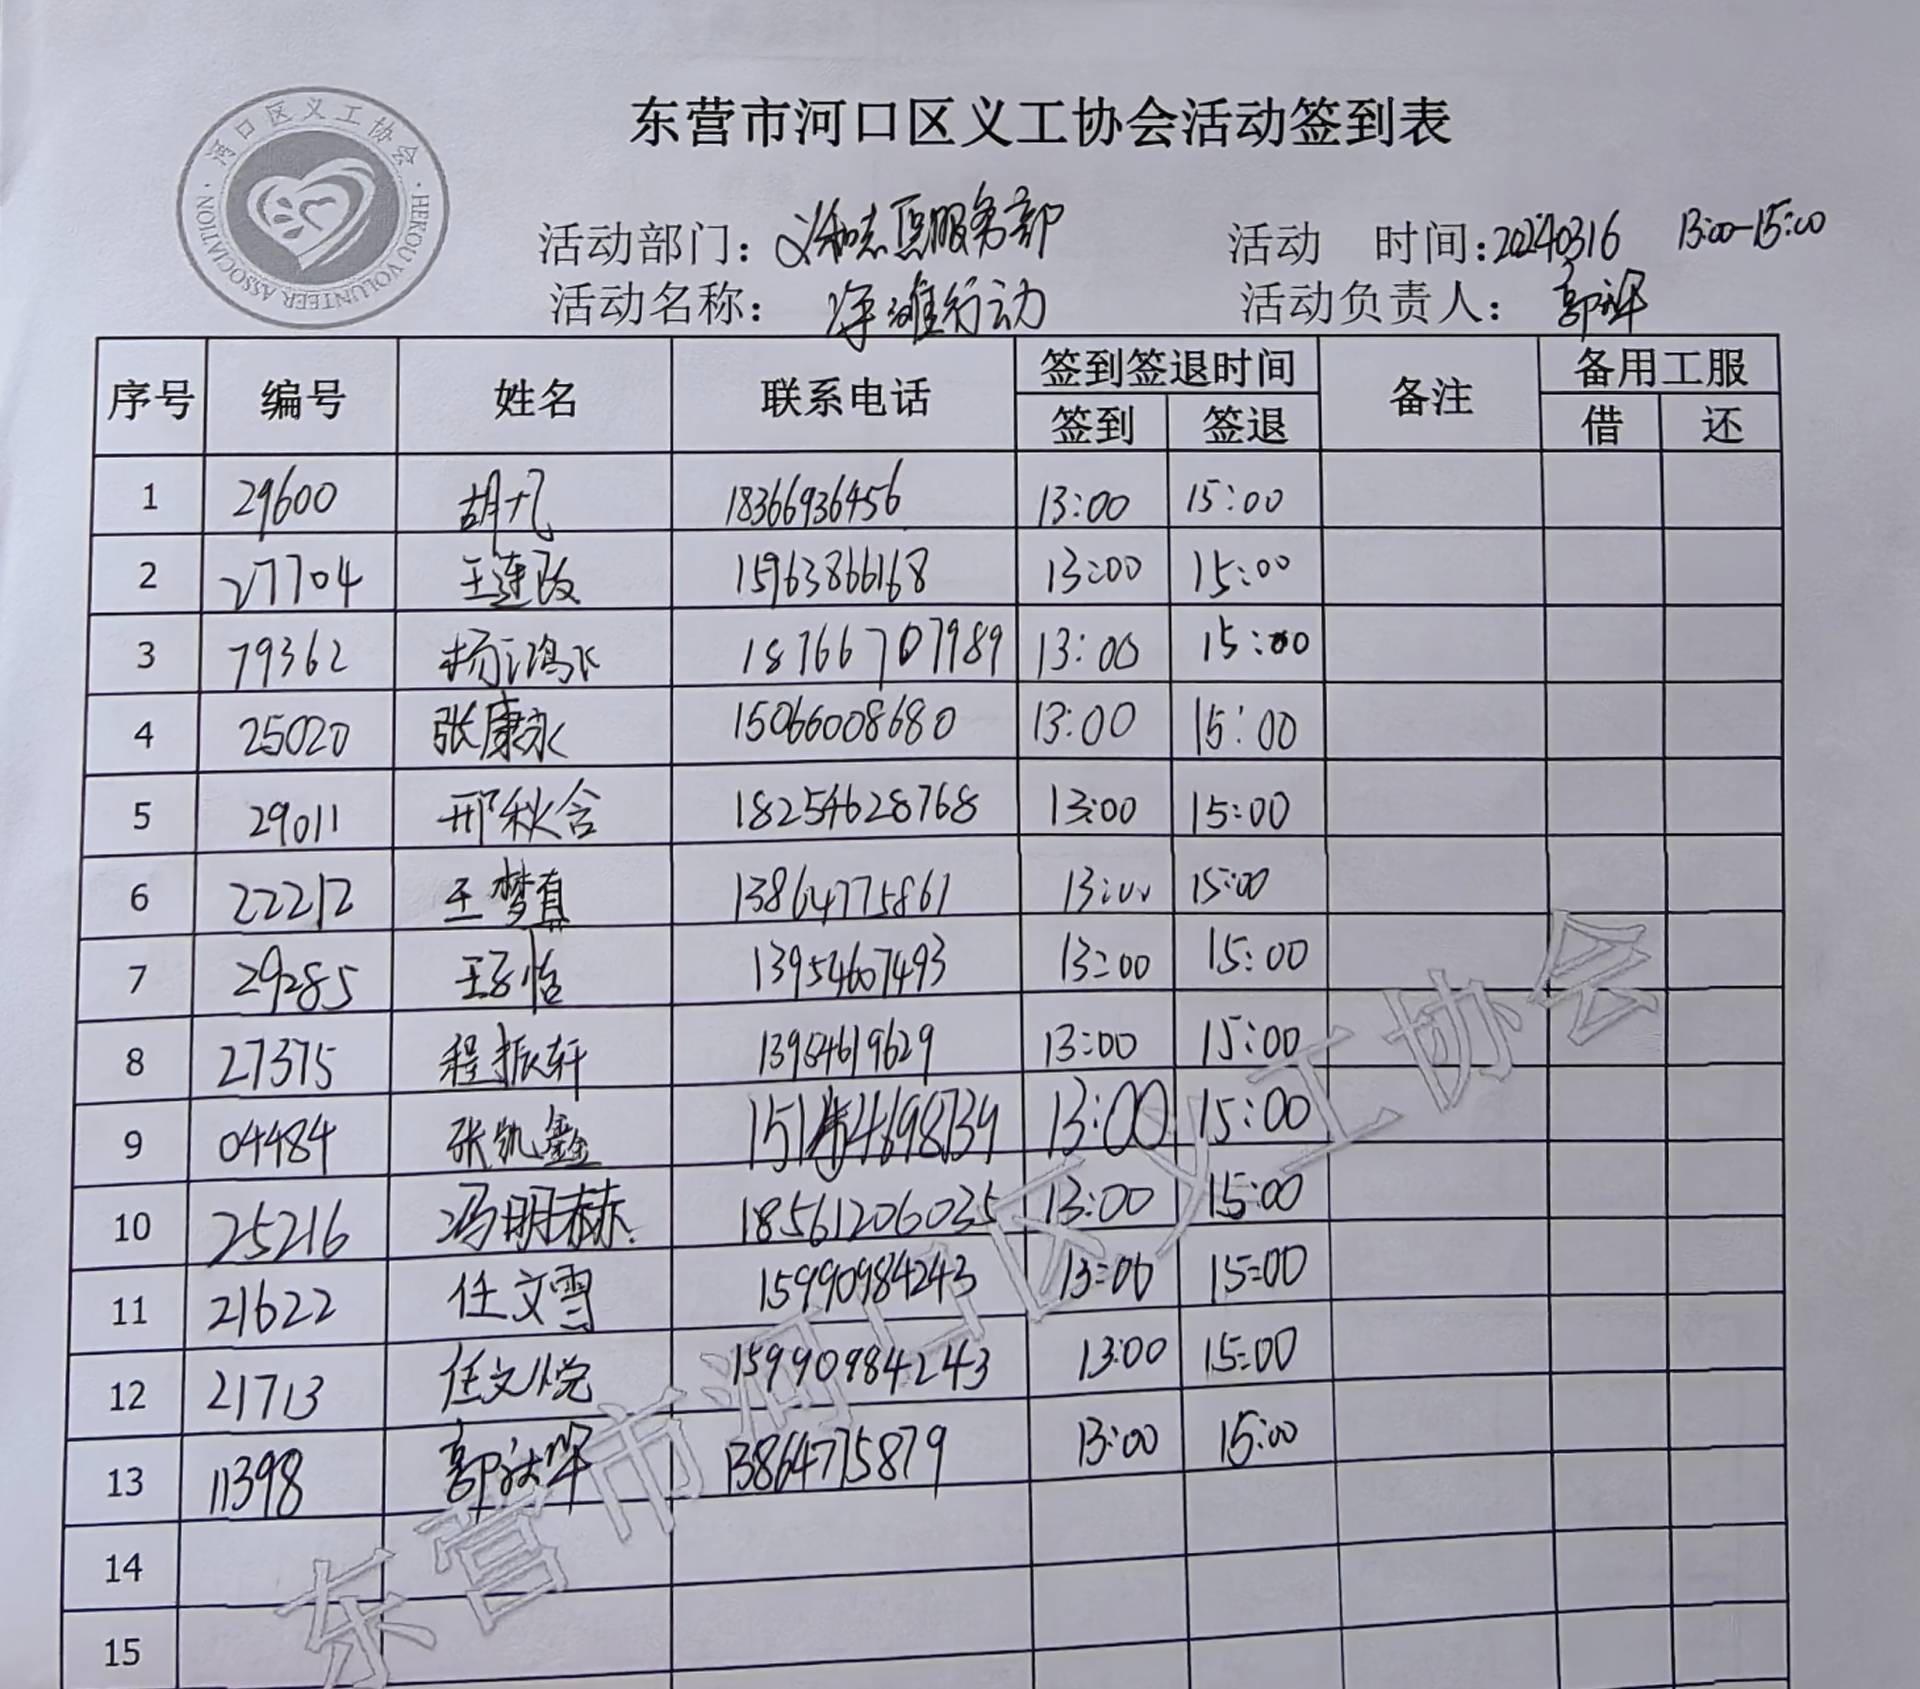 河口区义工协会
HEKOU VOLUNTEER ASSOCIATION
东营市河口区义工协会活动签到表
活动部门：义和志愿服务部 活动 时间：20240316 13:00-15:00
活动名称：净滩行动 活动负责人：郭
序号 编号 姓名 联系电话 签到签退时间 备注 备用工服
签到 签退 借 还
1 29600 胡凡 18366936456 13:00 15:00
2 27704 王连改 15963866168 13:00 15:00
3 79362 杨鸿飞 18766707989 13:00 15:00
4 25020 张康永 15066008680 13:00 15:00
5 29011 邢秋含 18254628768 13:00 15:00
6 22212 王梦真 13864775861 13:00 15:00
7 29285 王子怡 13954607493 13:00 15:00
8 27375 程振轩 13954619629 13:00 15:00
9 04484 张凯鑫 13:00 15:00
10 25216 冯明赫 18561206035 13:00 15:00
11 21622 任文雪 15990984243 13:00 15:00
12 21713 任文悦 15990984243 13:00 15:00
13 11398 郭 13864775879 13:00 15:00
14
15
东营市河口区义工协会